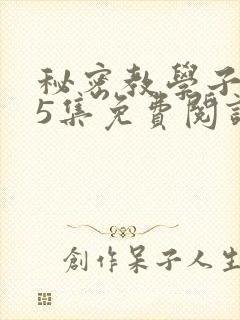 秘密教學子
5集免費閱
創作呆子人生